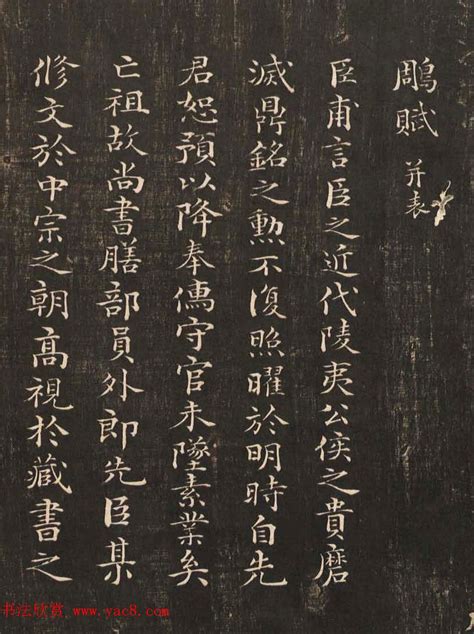 鵰賦 并表
臣甫言臣之近代陵夷公侯之貴磨
滅鼎銘之勲不復照曜於明時自先
君恕預以降奉儒守官未墜素業矣
亡祖故尚書膳部員外郎先臣某
修文於中宗之朝高視於藏書之
书法欣赏 www.yac8.com